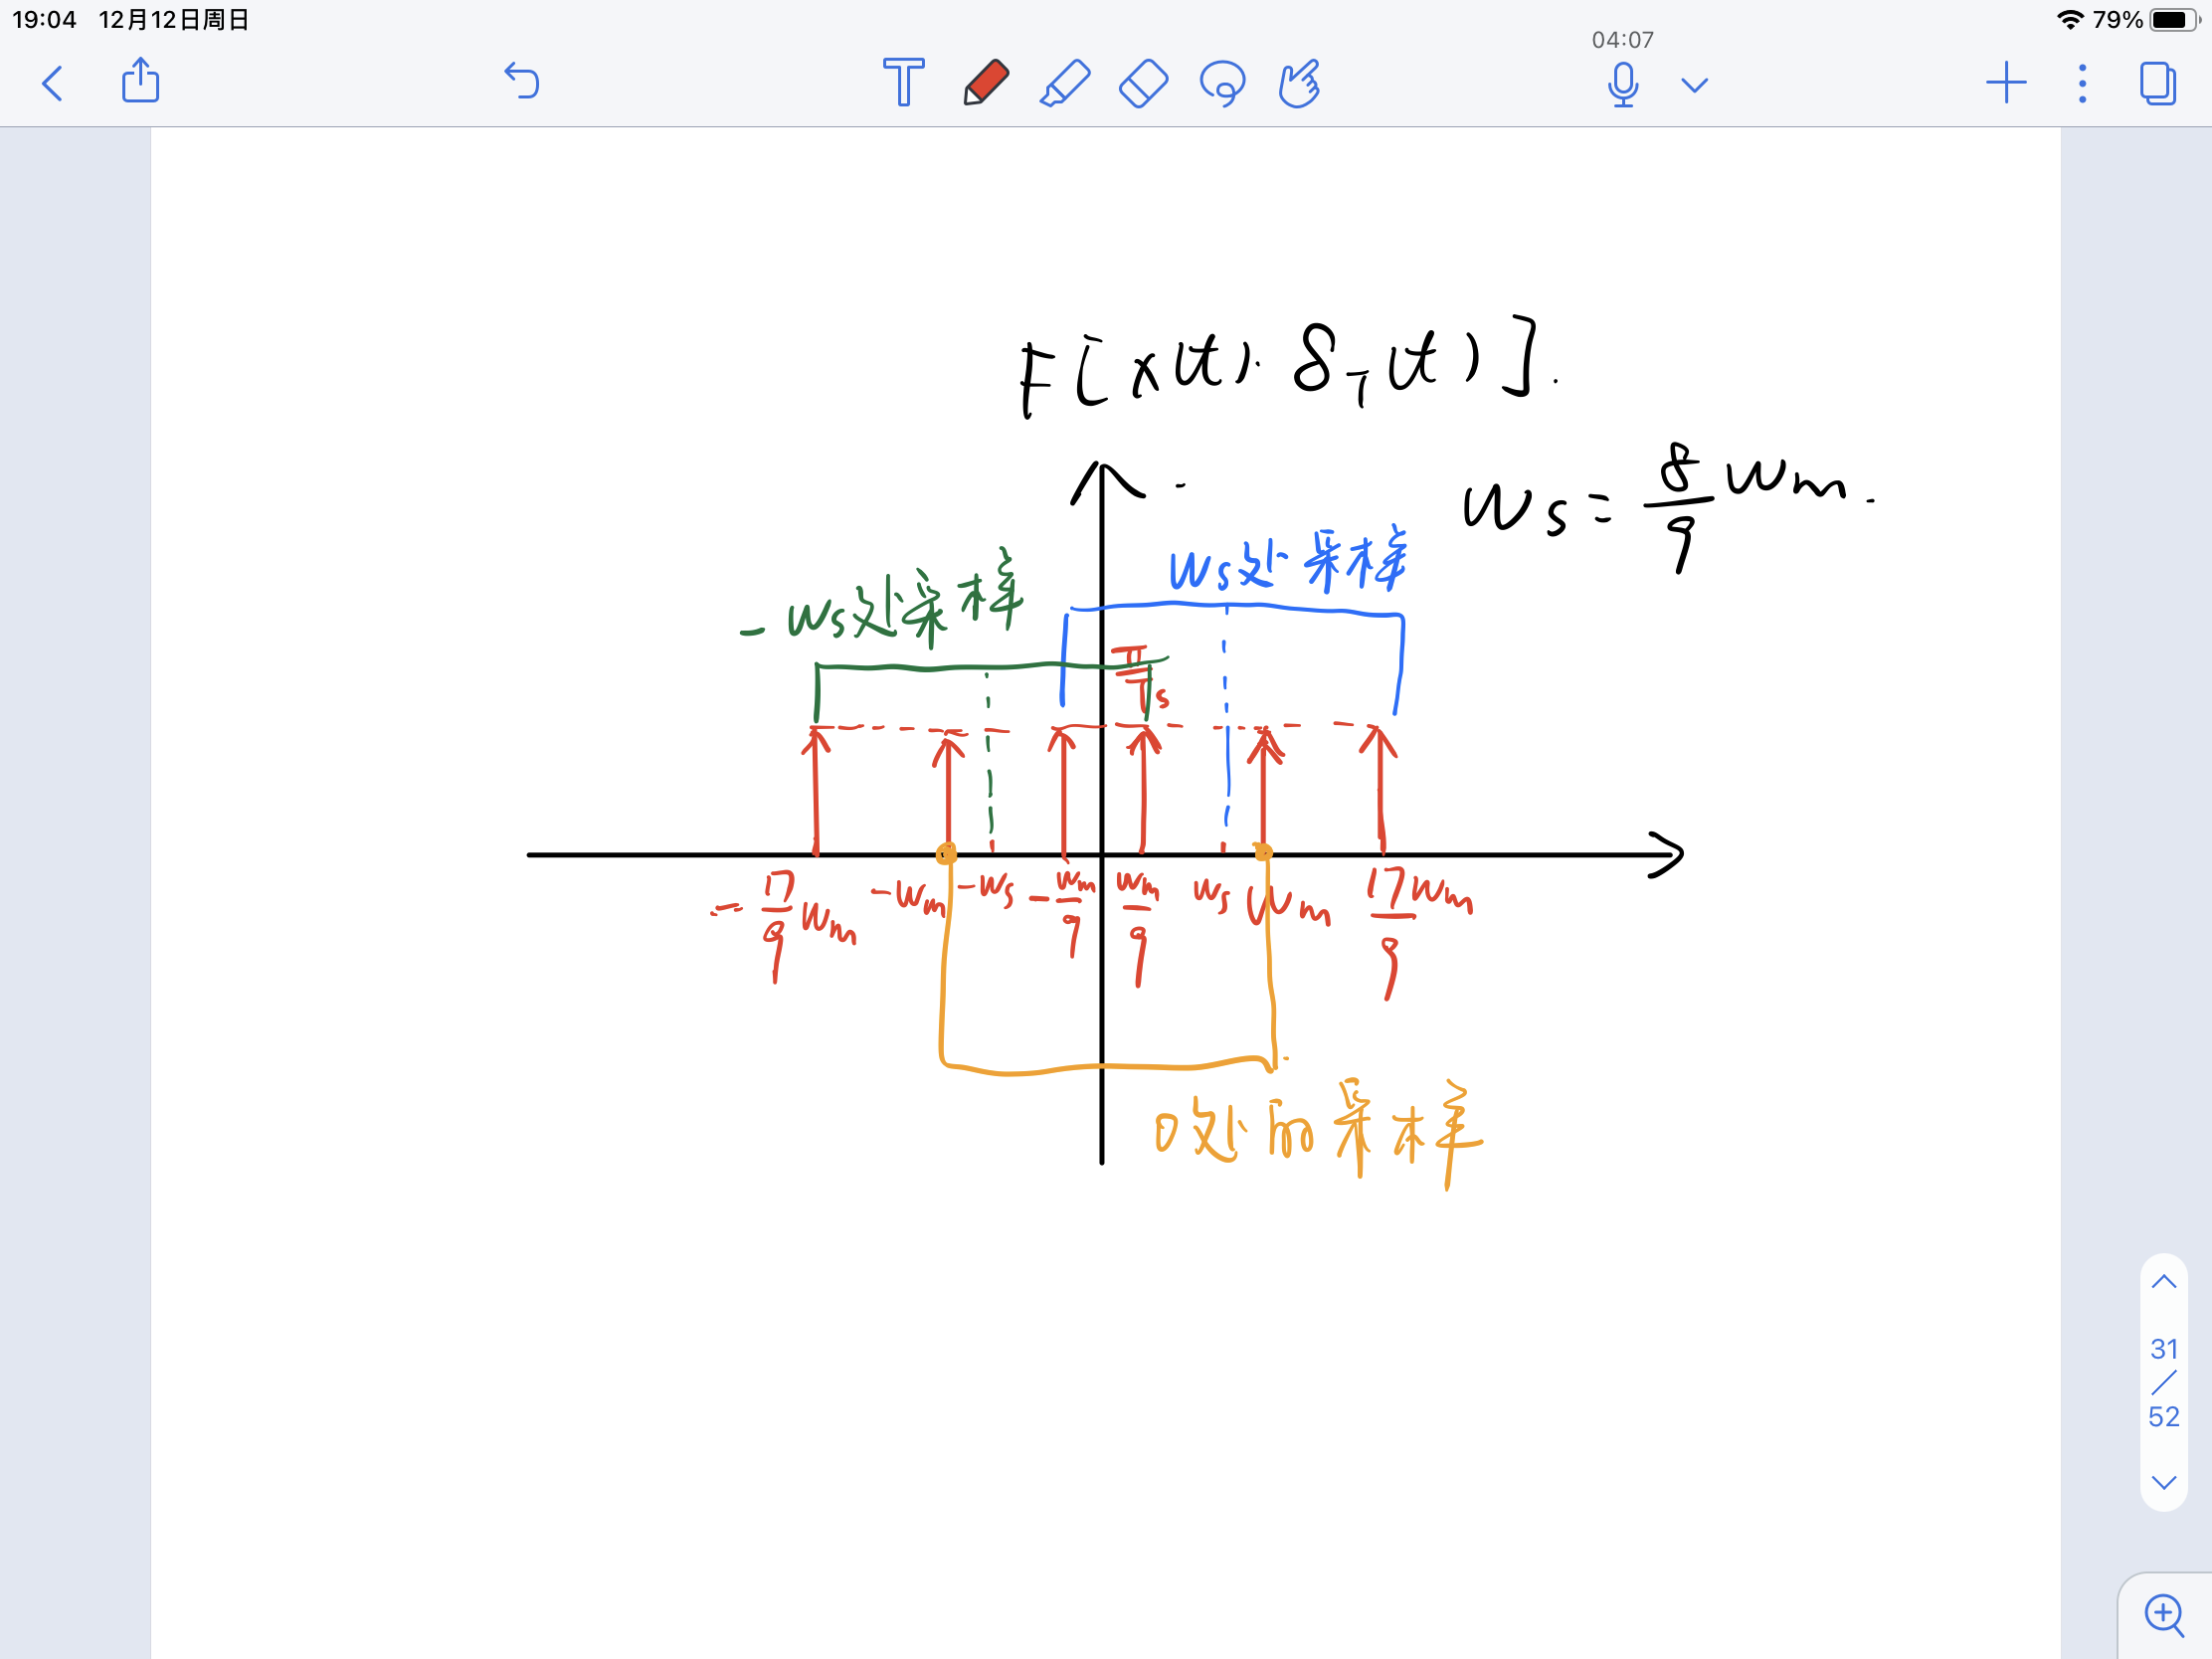 19:04 12月12日周日
79%
04:07
F[x(t)·δT(t)].
ws = 8/9 wm.
ws处采样
-ws处采样
π/Ts
-17/9 wm -wm -ws -wm/9 wm/9 ws wm 17wm/9
0处的采样
31
/
52